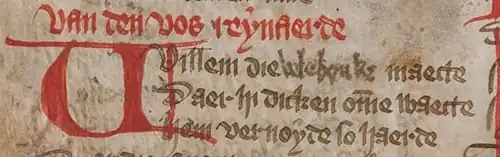 van den vos reynaerde
Willem die vele bouke maecte
Daer hi dicken om̄e waecte
hem vernoyde so haerde